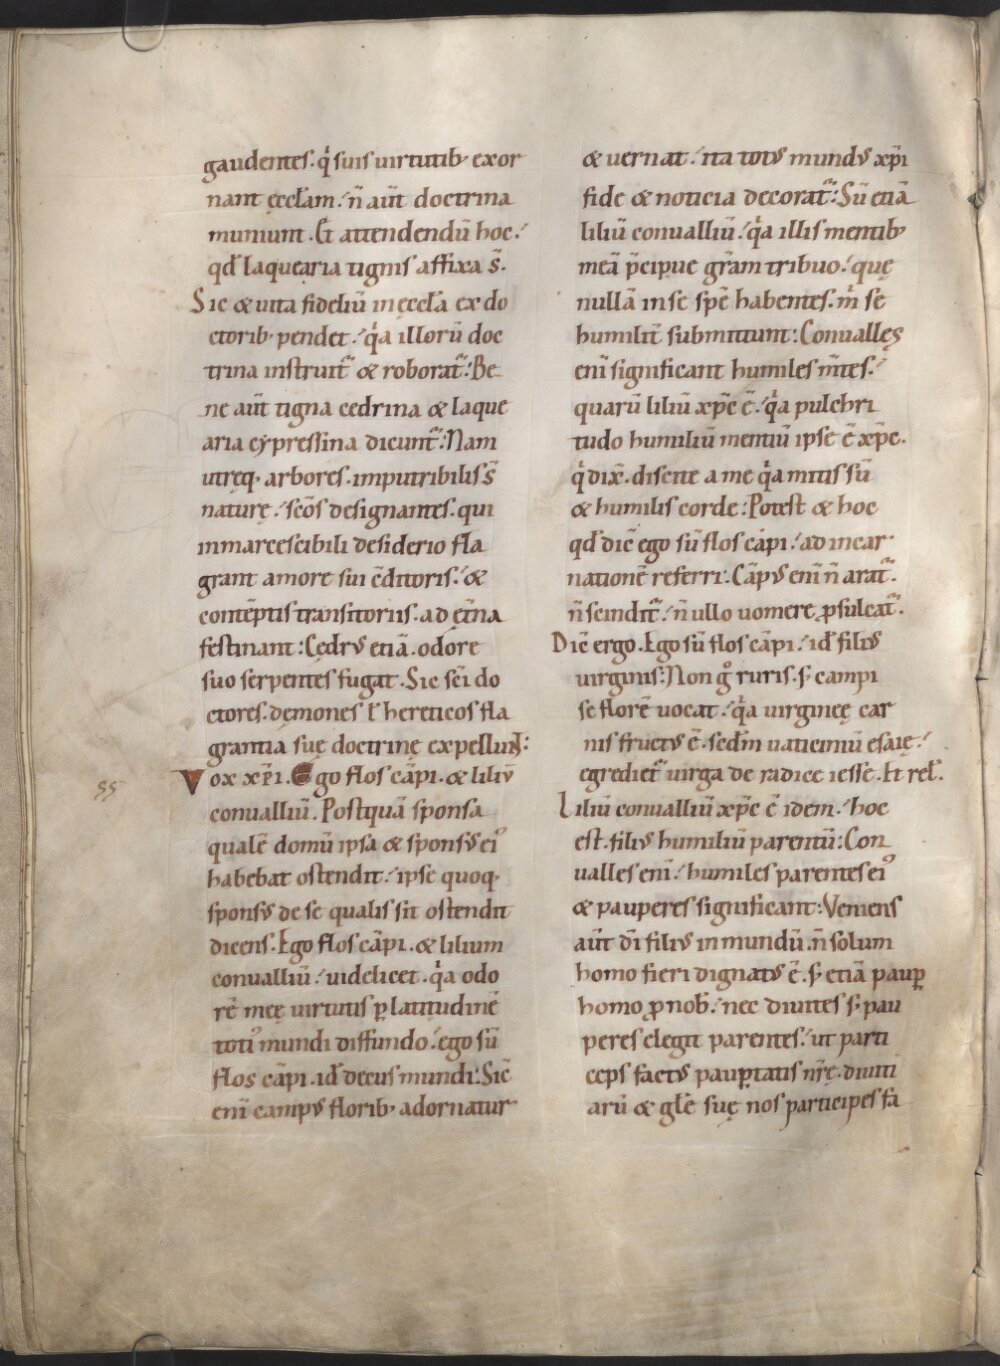 gaudentes. q̇ suis uirtutib; exor
nant ęcclam. n̄ aūt doctrina
muniunt. Et attendendū hoc.
qd̄ laquearia tignis affixa s̄.
Sic & uita fideliū in ęccl̄a ex do
ctorib; pendet. q̇a illorū doc
trina instruit᷑ & roborat᷑: Be
ne aūt tigna cedrina & laque
aria cypressina dicunt᷑: Nam
utręq; arbores. imputribilis s̄
naturę. sc̄os designantes. qui
inmarcescibili desiderio fla
grant amore sui c̄ditoris. &
contēptis transitoriis. ad ęt̄na
festinant: Cędrꝰ etiā. odore
suo serpentes fugat. Sic sc̄i do
ctores. dęmones ł hereticos fla
grantia suę doctrinę expellunt:
Vox xp̄i. Ego flos cāpi. & liliū
55
conualliū. Postquā sponsa
qualē domū ipsa & sponsꝰ eiꝰ
habebat ostendit. ipse quoq;
sponsꝰ de se qualis sit ostendit
dicens. Ego flos cāpi. & lilium
conualliū. uidelicet. q̇a odo
rē meę uirtutis ꝑ latitudinē
totiꝰ mundi diffundo. ego sū
flos cāpi. id̄ decus mundi: Sic̄
eni̅ campꝰ florib; adornatur
& uernat. ita totꝰ mundꝰ xp̄i
fide & noticia decorat᷑: Sū etiā
liliū conualliū. q̇a illis mentib;
meā p̄cipue gr̄am tribuo. quę
nullā in se spē habentes. m̊ se
humilit̄ submittunt: Conualles
eni̅ significant humiles m̄tes.
quarū liliū xp̄c ē. q̇a pulchri
tudo humiliū mentiū ipse ē xp̄c.
q̇ dix̄. discite a me q̇a mitis sū
& humilis corde: Potest & hoc
qd̄ dic̄ ego sū flos cāpi. ad incar
nationē referri: Cāpꝰ eni̅ n̄ arat᷑.
n̄ scindit᷑. n̄ ullo uomere ꝓsulcat᷑.
Dic̄ ergo. Ego sū flos cāpi. id̄ filiꝰ
uirginis: Non g̊ ruris. s; campi
se florē uocat. q̇a uirgineę car
nis fructꝰ ē. sedm̄ uaticiniū esaię.
egrediet᷑ uirga de radice iesse. Et rel̄.
Liliū conualliū xp̄c ē idem. hoc
est. filiꝰ humiliū parentū: Con
ualles eni̅. humiles parentes eiꝰ
& pauperes significant: Veniens
aūt dī filiꝰ in mundū. n̄ solum
homo fieri dignatꝰ ē. s; etiā pauꝑ
homo ꝓ nob̄. nec diuites s; pau
peres elegit parentes. ut parti
ceps factꝰ pauꝑtatis nr̄ę. diuiti
arū & gl̄e suę nos participes fa